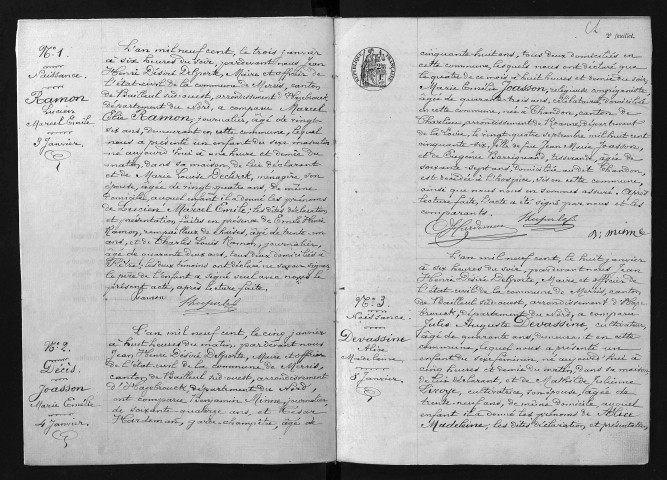 N° 1
Naissance.
Ramon
Lucien
Marcel Emile
3 Janvier.
L'an mil neuf cent, le trois janvier
à six heures du soir, pardevant nous Jean
Henri Désiré Delporte, Maire et officier de
l'état-civil de la commune de Merris, canton
de Bailleul sud-ouest, arrondissement d'Hazebrouck
département du Nord, a comparu Marcel
Elie Ramon, journalier, âgé de vingt
six ans, demeurant en cette commune, lequel
nous a présenté un enfant du sexe masculin
né aujourd'hui à une heure et demie du
matin, dans sa maison, de lui déclarant
et de Marie Louise Declerck, ménagère son
épouse, âgée de vingt quatre ans, de même
domicile, auquel enfant il a donné les prénoms
de Lucien Marcel Emile; les dites déclaration
et présentation faites en présence de Emile Henri
Ramon, rempailleur de chaises, âgé de trente-un
ans, et de Charles Louis Ramon, journalier,
âgé de quarante deux ans, tous deux domiciliés à
les deux témoins ont déclaré ne savoir signer
le père de l'enfant a signé seul avec nous le
présent acte, après lecture faite.
Ramon
N° 2.
Décès.
Joasson
Marie Emélie
4 Janvier.
L'an mil neuf cent, le cinq janvier
à huit heures du matin, pardevant nous
Jean Henri Désiré Delporte, Maire et officier
de l'état-civil de la commune de Merris,
canton de Bailleul sud-ouest, arrondissement
d'Hazebrouck, département du Nord,
ont comparu Benjamin journalier,
de soixante-quatre ans, et César
Hardeman, garde-champêtre, âgé de
2e feuillet.
cinquante-huit ans, tous deux domiciliés en
cette commune, lesquels nous ont déclaré que
le quatre de ce mois à huit heures et demie du soir,
Marie Emélie Joasson, religieuse congréganiste,
âgée de quarante trois ans, célibataire, domiciliée
en cette commune, née à Chandon, canton de
Charlieu, arrondissement de Roanne, département
de la Loire, le vingt quatre septembre mil huit cent
cinquante-six, fille de feu Jean Marie Joasson,
et de Eugénie tisserande, âgée de
soixante-sept ans, domiciliée au dit Chandon,
est décédée à l'hospice sis en cette commune,
ainsi que nous nous en sommes assuré. Après
lecture faite, l'acte a été signé par nous et les
comparants.
N° 3.
Naissance.
Devassine
Alice
Madeleine.
8 Janvier.
L'an mil neuf cent, le huit janvier
à six heures du soir, pardevant nous Jean
Henri Désiré Delporte, Maire et officier de
l'état civil de la commune de Merris, canton
de Bailleul sud-ouest, arrondissement d'Haze-
brouck, département du Nord, a comparu
Jules Auguste Devassine, cultivateur,
âgé de quarante ans, demeurant en cette
commune, lequel nous a présenté un
enfant du sexe féminin, né aujourd'hui à
cinq heures et demie du matin, dans sa maison,
de lui déclarant, et de Mathilde Julienne
cultivatrice, son épouse, âgée de
trente-neuf ans, de même domicile, auquel
enfant il a donné les prénoms de Alice
Madeleine; les dites déclaration et présentation